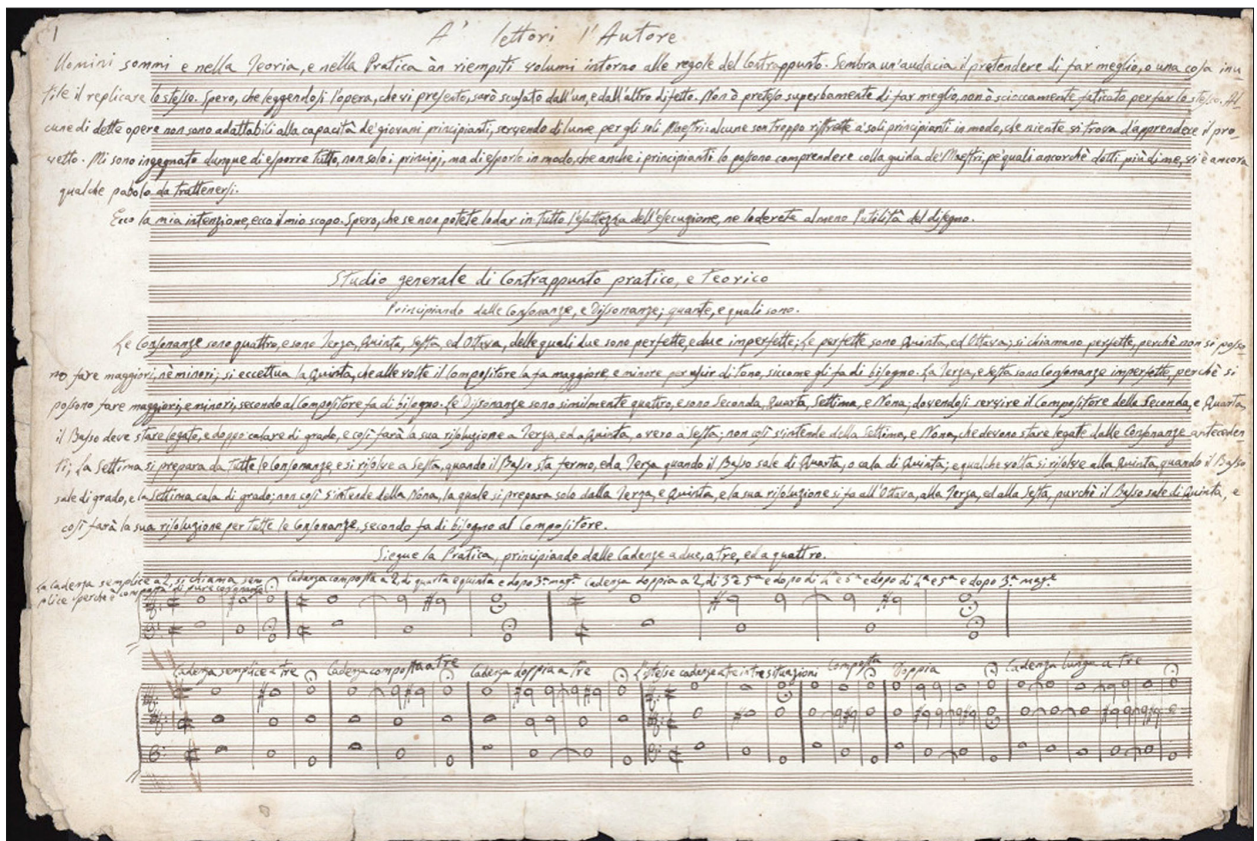 1
A' lettori l'Autore
Uomini sommi e nella Teoria, e nella Pratica àn riempiti volumi intorno alle regole del Contrappunto. Sembra un'audacia il pretendere di far meglio, o una cosa inu
tile il replicare lo stesso. Spero, che leggendosi l'opera, che vi presento, sarò scusato dall'un, e dall'altro difetto. Non ò preteso superbamente di far meglio, non ò scioccamente faticato per far lo stesso. Al
cune di dette opere non sono adattabili alla capacità de' giovani principianti, servendo di lume per gli soli Maestri: alcune son troppo ristrette a' soli principianti in modo, che niente vi trova d'apprendere il pro
vetto. Mi sono ingegnato dunque di esporre tutto, non solo i principj, ma di esporlo in modo, che anche i principianti lo possono comprendere colla guida de' Maestri, pe' quali ancorchè dotti più di me, vi è ancora
qualche pabolo da trattenersi.
Ecco la mia intenzione, ecco il mio scopo. Spero, che se non potete lodar in tutto l'esattezza dell'esecuzione, ne loderete almeno l'utilità del disegno.
Studio generale di Contrappunto pratico, e teorico
Principiando dalle Consonanze, e Dissonanze; quante, e quali sono.
Le Consonanze sono quattro, e sono Terza, Quinta, Sesta, ed Ottava, delle quali due sono perfette, e due imperfette; Le perfette sono Quinta, ed Ottava; si chiamano perfette, perchè non si posso
no fare maggiori, nè minori; si eccettua la Quinta, che alle volte il Compositore la fa maggiore e minore per uscir di tono, siccome gli fa di bisogno. La Terza, e Sesta sono Consonanze imperfette, perchè si
possono fare maggiori, e minori, secondo al Compositore fa di bisogno. Le Dissonanze sono similmente quattro, e sono Seconda, Quarta, Settima, e Nona; dovendosi servire il Compositore della Seconda, e Quarta,
il Basso deve stare legato, e doppo calare di grado, e così farà la sua risoluzione a Terza, ed a Quinta, o vero a Sesta; non così s'intende della Settima, e Nona, che devono stare legate dalle Consonanze anteceden
ti; La Settima si prepara da tutte le Consonanze e si risolve a Sesta, quando il Basso sta fermo, ed a Terza quando il Basso sale di Quarta, o cala di Quinta; e qualche volta si risolve alla Quinta, quando il Basso
sale di grado, e la Settima cala di grado; non così s'intende della Nona, la quale si prepara solo dalla Terza, e Quinta, e la sua risoluzione si fa all'Ottava, alla Terza, ed alla Sesta, purchè il Basso sale di Quinta, e
così farà la sua risoluzione per tutte le Consonanze, secondo fa di bisogno al Compositore.
Siegue la Pratica, principiando dalle Cadenze a due, a tre, ed a quattro.
La Cadenza semplice a 2, si chiama sem
plice perchè è composta di pure consonanze
Cadenza composta a 2, di quarta e quinta e dopo 3ª magᵉ
Cadenza doppia a 2, di 3ª e 5ª e dopo di 4ª e 5ª e dopo di 4ª e 5ª e dopo 3ª magᵉ
Cadenza semplice a tre
Cadenza composta a tre
Cadenza doppia a tre
L'istesse cadenze a tre in tre situazioni
Composta
Doppia
Cadenza lunga a tre